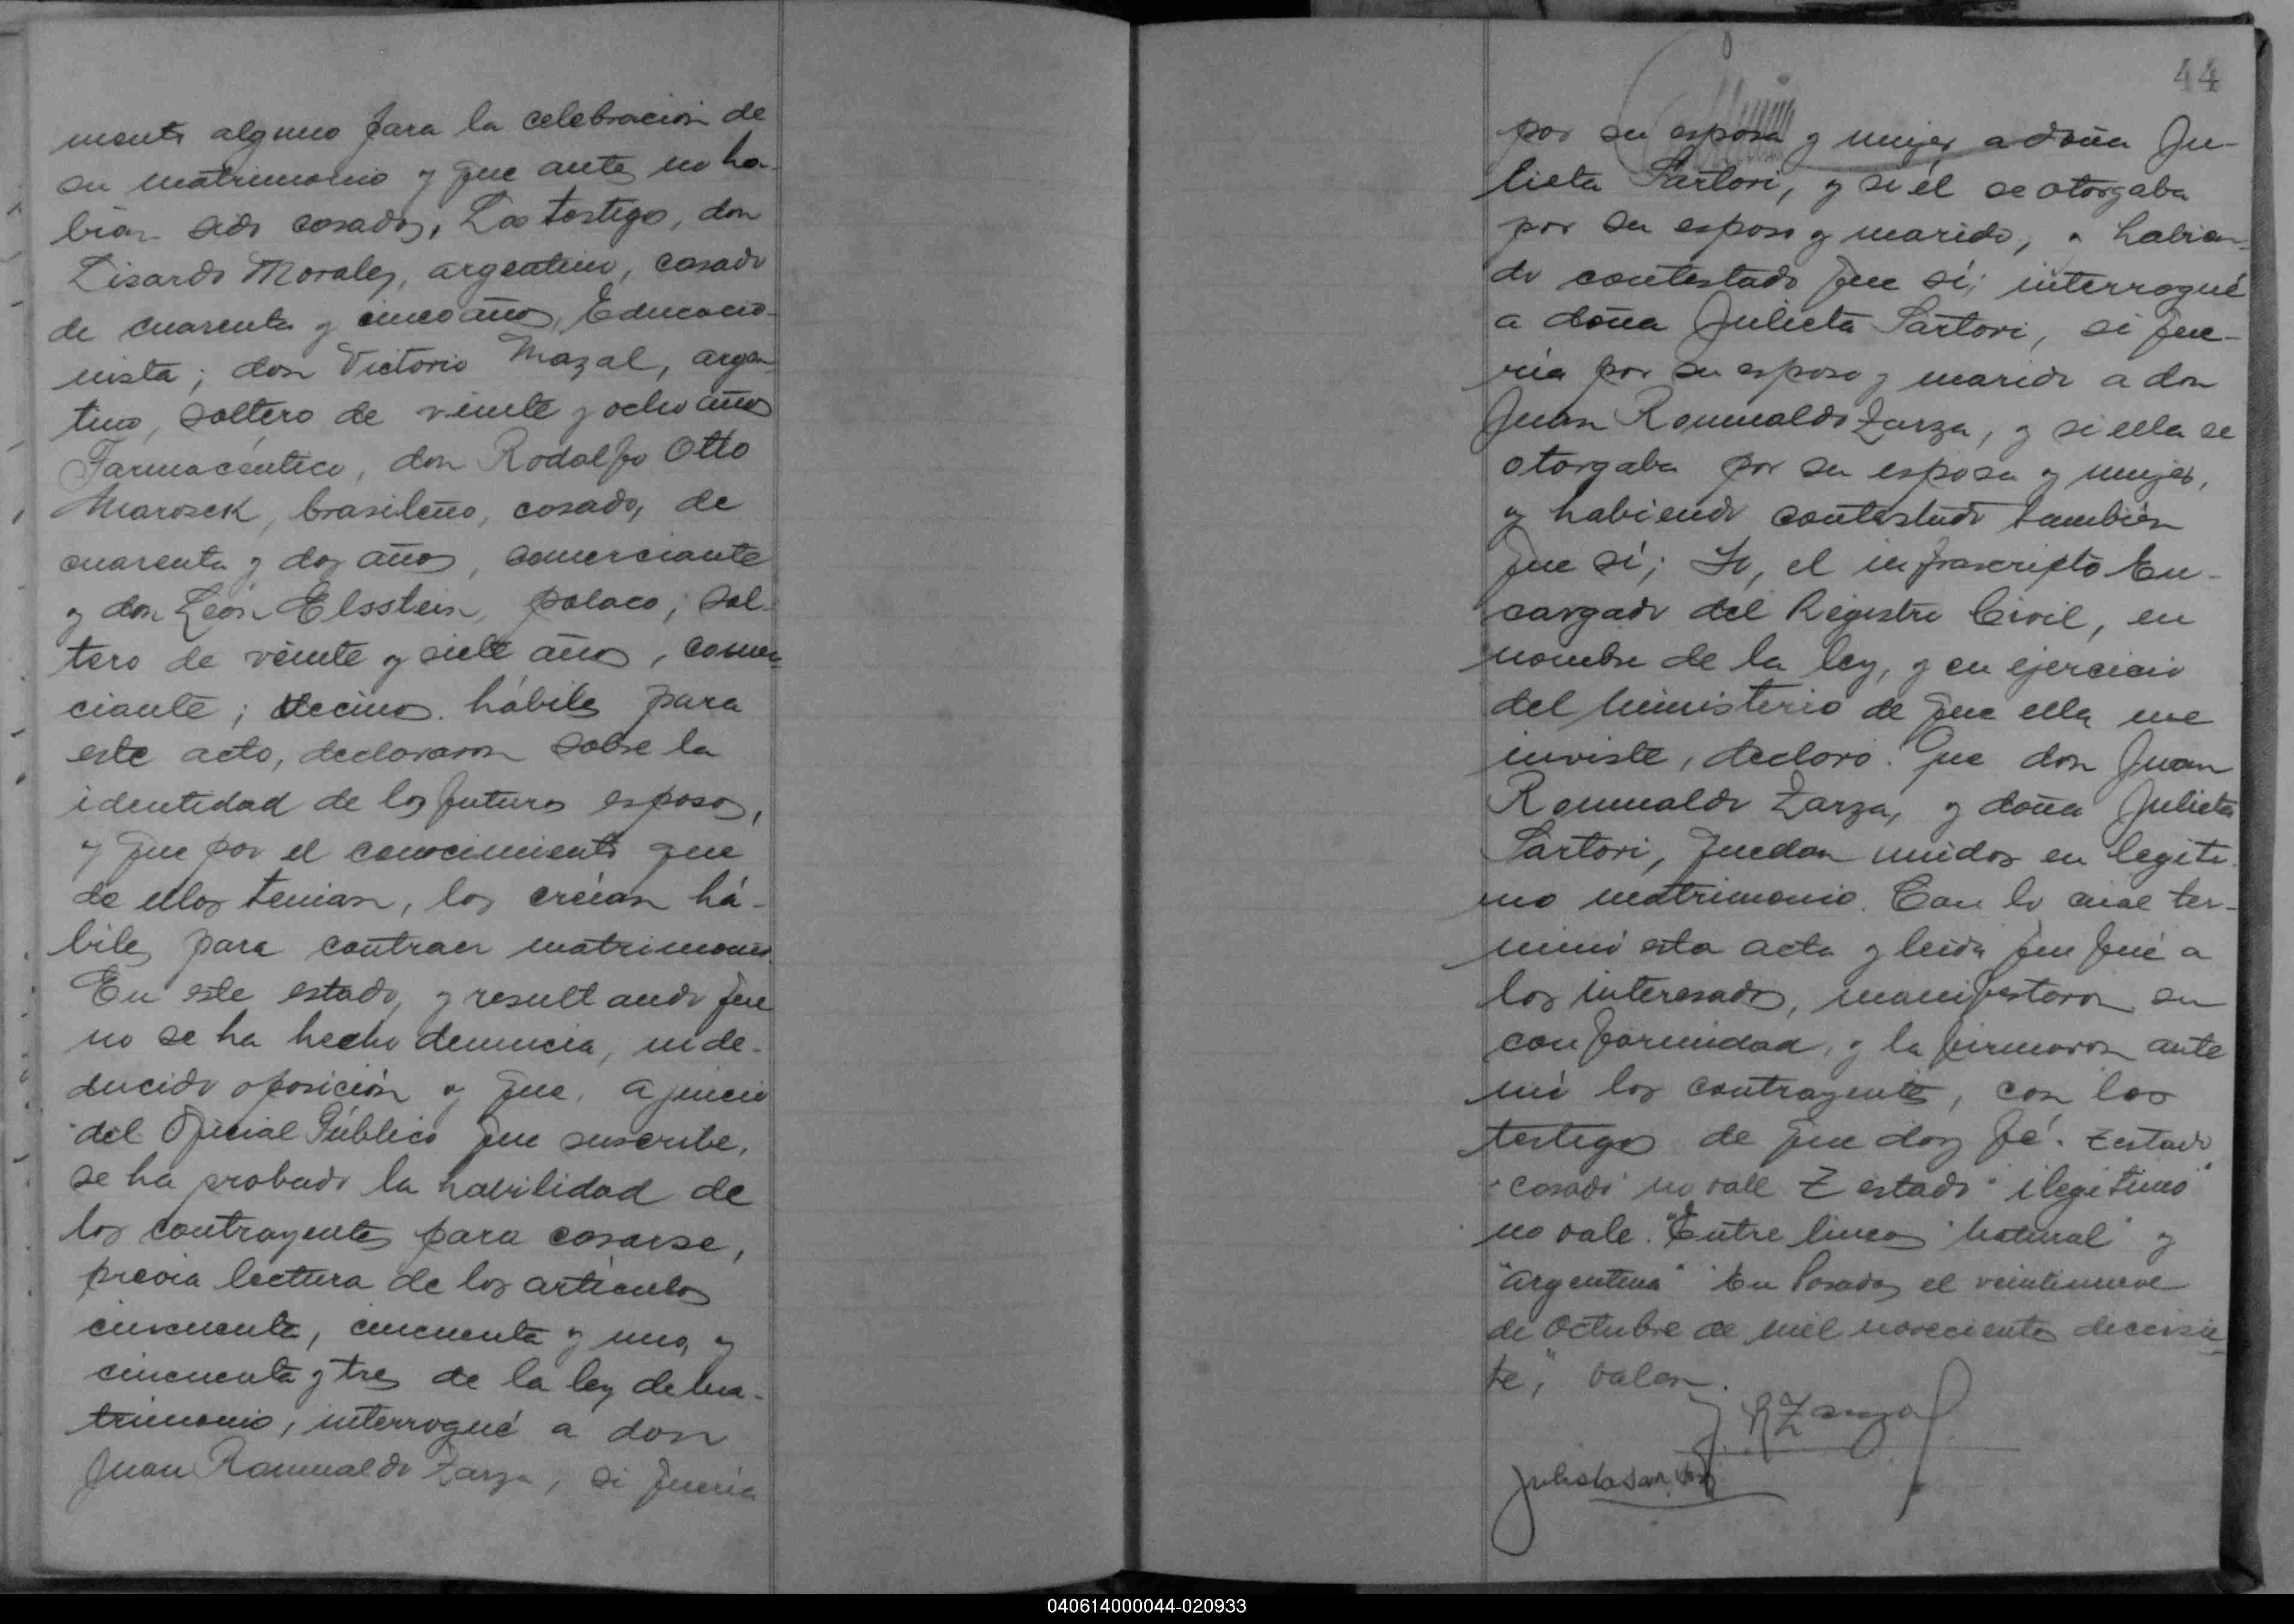 mento alguno para la celebración de
su matrimonio y que antes no ha-
bian sido casados. Los testigos, don
Lisardo Morales, argentino, casado
de cuarenta y cinco años, Educacio-
nista; don Victorio Mazal, argen-
tino, soltero de veinte y ocho años
Farmacéutico, don Rodolfo Otto
Marosek, brasileño, casado, de
cuarenta y dos años, comerciante
y don León Elsstein, polaco, sol-
tero de veinte y siete años, comer-
ciante; vecinos hábiles para
este acto, declararon sobre la
identidad de los futuros esposos,
y que por el conocimiento que
de ellos tenian, los creían há-
biles para contraer matrimonio.
En este estado, y resultando que
no se ha hecho denuncia, ni de-
ducido oposición y que, a juicio
del Oficial Público que suscribe,
se ha probado la habilidad de
los contrayentes para casarse,
previa lectura de los artículos
cincuenta, cincuenta y uno, y
cincuenta y tres de la ley de ma-
trimonio, interrogué a don
Juan Romualdo Zarza, si quería
44
por su esposa y mujer a doña Ju-
lieta Sartori, y si él se otorgaba
por su esposo y marido, y habien-
do contestado que sí; interrogué
a doña Julieta Sartori, si que-
ría por su esposo y marido a don
Juan Romualdo Zarza, y si ella se
otorgaba por su esposa y mujer,
y habiendo contestado también
que sí; Yo, el infrascripto En-
cargado del Registro Civil, en
nombre de la ley, y en ejercicio
del ministerio de que ella me
inviste, declaro: Que don Juan
Romualdo Zarza, y doña Julieta
Sartori, quedan unidos en legíti-
mo matrimonio. Con lo cual ter-
minó esta acta y leida que fué a
los interesados, manifestaron su
conformidad, y la firmaron ante
mi los contrayentes, con los
testigos de que doy fé. Testado
"casado" no vale Testado "ilegitimo"
no vale. Entre lineas "natural" y
"argentina" "En Posadas el veintinueve
de Octubre de mil novecientos diecisie-
te," valen.
J. R. Zarza
Julieta Sartori
040614000044-020933